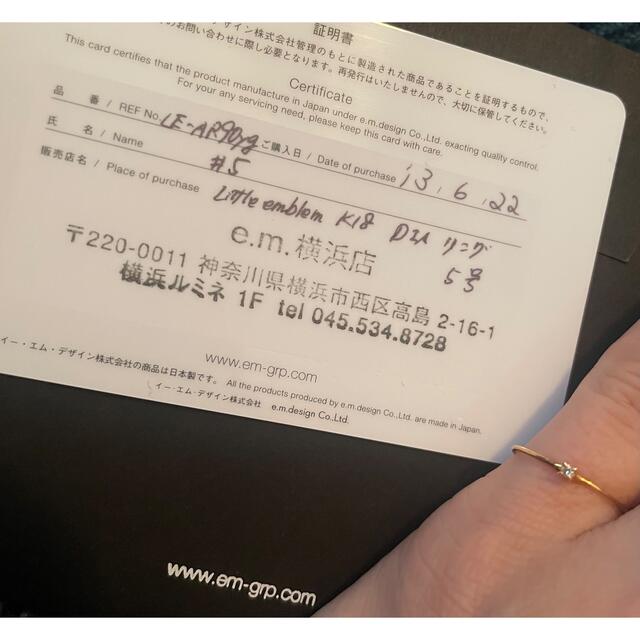 証明書
デザイン株式会社管理のもとに製造された商品であることを証明するもので、
のお問い合わせに際し必要となります。再発行はいたしませんので、大切に保管してください。
Certificate
This card certifies that the product manufacture in Japan under e.m.design Co.,Ltd. exacting quality control.
For your any servicing need, please keep this card with care.
品 番 / REF No. LE-AR90yg ご購入日 / Date of purchase 13 . 6 . 22
氏 名 / Name #5
販売店名 / Place of purchase Little emblem K18 DIA リング
5号
e.m.横浜店
〒220-0011 神奈川県横浜市西区高島 2-16-1
横浜ルミネ 1F tel 045.534.8728
www.em-grp.com
イー・エム・デザイン株式会社の商品は日本製です。 All the products produced by e.m.design Co.,Ltd. are made in Japan.
イー・エム・デザイン株式会社 e.m.design Co.,Ltd.
www.em-grp.com